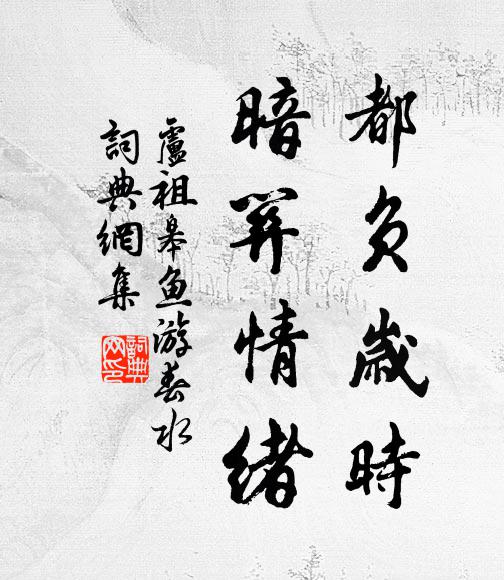 都負歲時
暗關情緒
盧祖皋魚游春水
詞典網集
詞典
网印